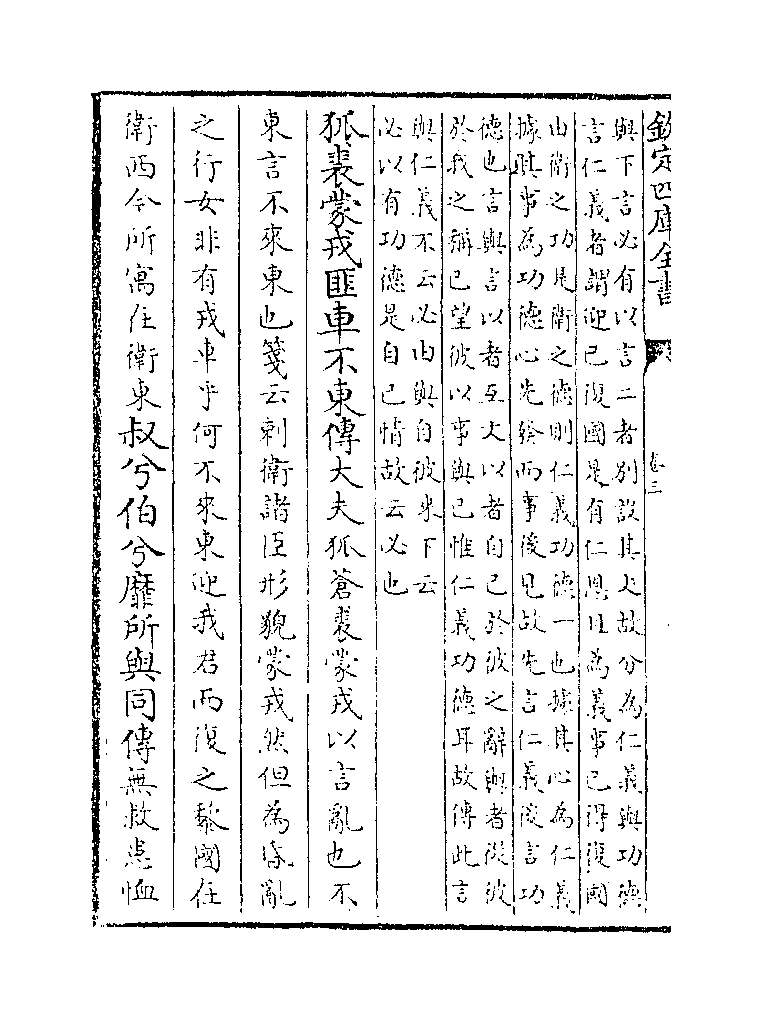 欽定四庫全書
卷三
與下言必有以言二者别設其文故分為仁義與功德
言仁義者謂迎己復國是有仁恩且為義事己得復國
由衛之功是衛之德則仁義功德一也據其心為仁義
據其事為功德心先發而事後見故先言仁義後言功
德也言與言以者互文以者自己於彼之辭與者從彼
於我之稱己望彼以事與己惟仁義功德耳故傳此言
與仁義不云必由與自彼來下云
必以有功德是自己情故云必也
狐裘蒙戎匪車不東傳大夫狐蒼裘蒙戎以言亂也不
東言不來東也箋云刺衛諸臣形貌蒙戎然但為昏亂
之行女非有戎車乎何不來東迎我君而復之黎國在
衛西今所寓在衛東叔兮伯兮靡所與同傳無救患恤